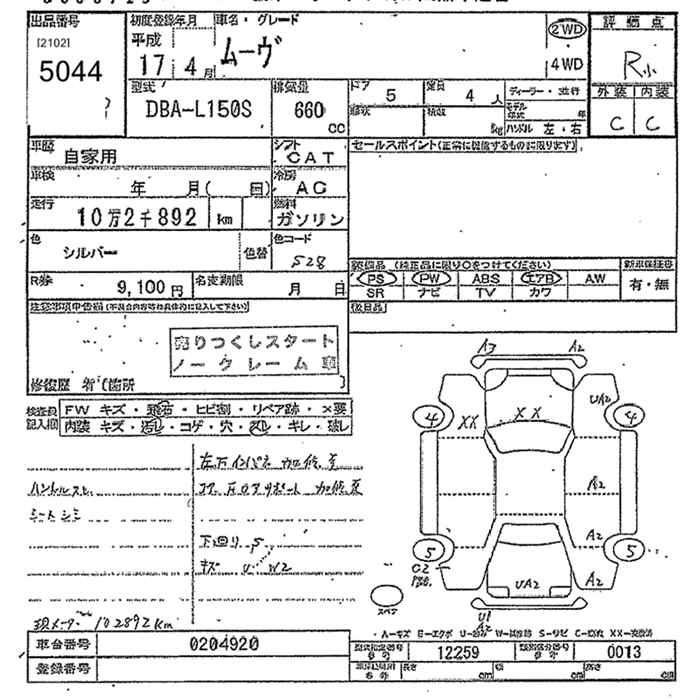 出品番号
[2102]
5044
初度登録年月
平成
17 4月
車名・グレード
ムーヴ
2WD
4WD
評価点
R小
外装 内装
C C
型式
DBA-L150S
排気量
660
CC
ドア
5
定員
4 人
形状
積載
kg
ディーラー・並行
モデル年式
年
ハンドル 左・右
車歴
自家用
シフト
CAT
車検
年 月( 回)
冷房
AC
走行
10万2千892 km
燃料
ガソリン
色
シルバー
色替
色コード
528
R券
9,100円
名変期限
月 日
セールスポイント(正常に機能するものに限ります)
装備品 (純正品に限り○をつけてください)
PS PW ABS エアB AW
SR ナビ TV カワ
新車保証書
有・無
後日品
注意事項申告欄(不具合内容等は具体的に記入して下さい)
売りつくしスタート
ノークレーム車
修復歴 有(箇所 )
検査員
記入欄
FW キズ・飛石・ヒビ割・リペア跡・×要
内装 キズ・汚レ・コゲ・穴・スレ・キレ・破レ
左右インパネ 加修歴
ハンドルスレ
コアサポート 加修歴
シートシミ
下回り S
キズ U W2
現メーター 102892Km
A3 A2
UA2
4 XX XX 4
A2
A2
5 5
C2
UA2
A2
スペア
U1
A2
A-キズ E-エクボ U-凹み W-補修跡 S-サビ C-腐食 XX-交換済
車台番号
0204920
登録番号
型式指定番号
12259
類別区分番号
0013
長さ cm 幅 cm 高さ cm